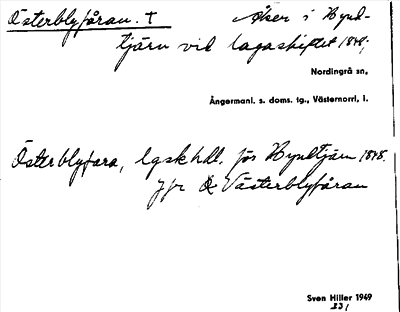 Österblyfåran. † Åker i Hynd-
tjärn vid lagaskiftet 1848;
Nordingrå sn,
Ångermanl. s. doms. tg., Västernorrl. l.
Österblyfara, lgskhdl. för Hyndtjärn 1848.
jfr Västerblyfåran
Sven Hiller 1949